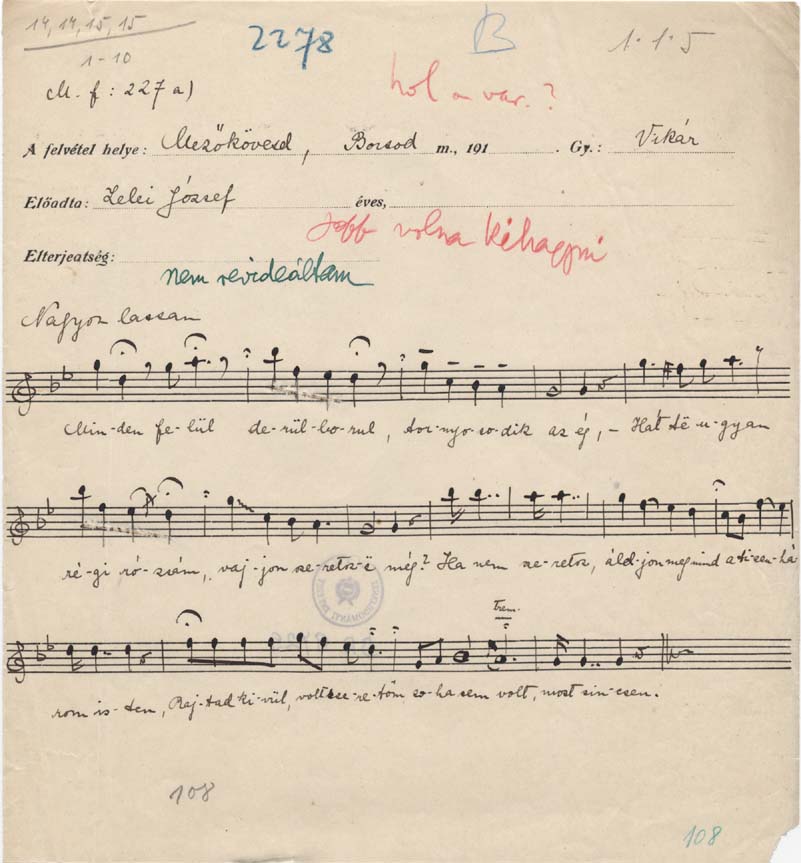 14, 14, 15, 15
1-10
2278
B
1·1·5
M. f: 227a)
hol a var.?
A felvétel helye: Mezőkövesd, Borsod m., 191 . Gy.: Vikár
Előadta: Lelei József éves,
Jobb volna kihagyni
Elterjeatség:
nem revideáltam
Nagyon lassan
Min-den fe-lül de-rül-bo-rul, tor-nyo-so-dik az ég, - Hát të u-gyan
ré-gi ró-zsám, vaj-jon sze-retsz-ë még? Ha nem sze-retsz, áld-jon meg mind a ti-zen-há
Trem.
rom is-ten, Raj-tad ki-vül, volt sze-re-tőm so-ha sem volt, most sin-csen.
108
108